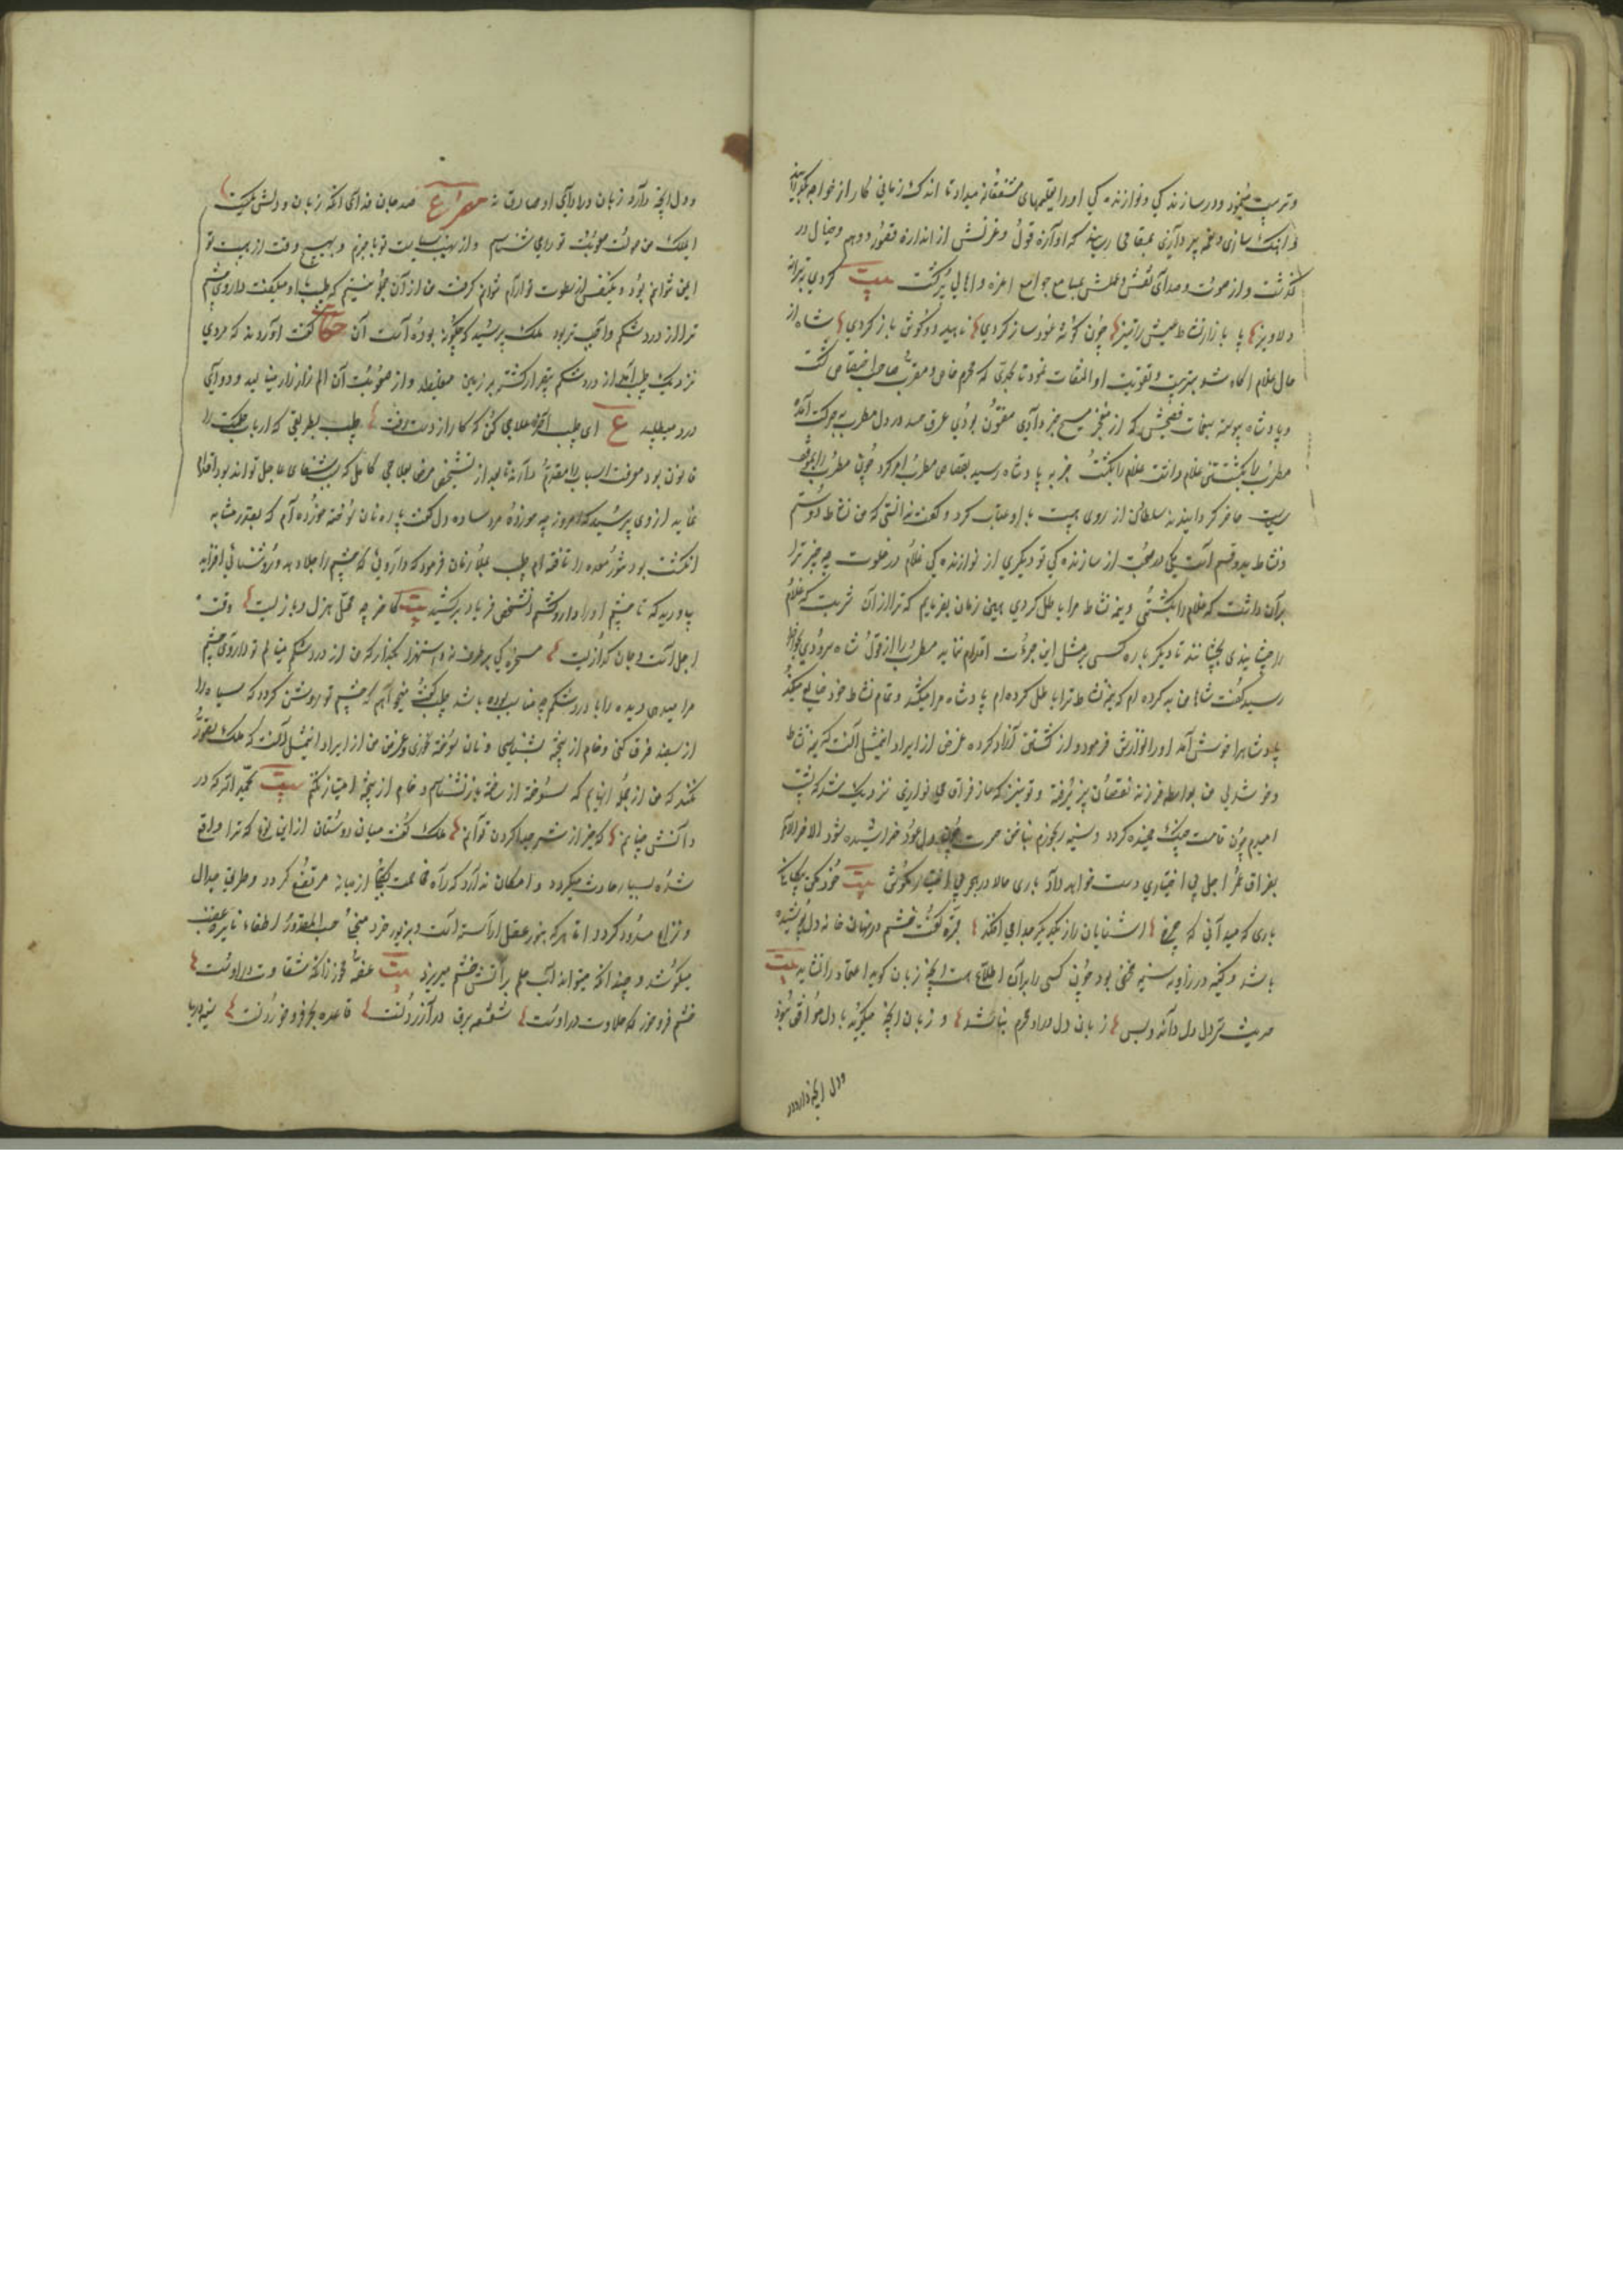 و تربیت مینمود و در سازندگی و نوازندگی او را تعلیمهای مشفقانه میداد تا اندک زمانی کار از خواجه بگذرانید
در آهنگ سازی و نغمه پردازی بمقامی رسید که آوازه قول و غزلش از اندازه تصور و وهم و خیال در
گذشت و از صوت و صدای نقش و عملش مسامع جوامع اعزه و اهالی پر گشت بیت کردی بترانه
دلاویز با بازار نشاط عیش را تیز چون گوشه عود ساز کردی ناهید دو گوش باز کردی شاه از
حال غلام آگاه شد بتربیت و تقویت او التفات نمود تا بحدی که محرم خاص و مقرب صاحب اختصاص گشت
و پادشاه پیوسته بنغمات فصیحش که از معجز مسیح خبر دادی مفتون بودی عرق حسد در دل مطرب بحرکت آمده
غلام را بکشت خبر به پادشاه رسید بقصاص مطرب امر کرد چون مطرب را بموقف
سیاست حاضر گردانیدند سلطان از روی هیبت با او عتاب کرد و گفت ندانستی که من نشاط دوستم
و نشاط بدو قسم است یکی در صحبت از سازندگی تو دیگری از نوازندگی غلام در خلوت چه چیز ترا
بر آن داشت که غلام را بکشتی و نیمه نشاط مرا باطل کردی همین زمان بفرمایم که ترا از آن شربت که غلام
را چشانیدی بچشانند تا دیگر باره کسی بمثل این جرءات اقدام ننماید مطرب را از قول شاه سرودی بخاطر
رسید گفت شاها من بد کرده ام که نیمه نشاط ترا باطل کرده ام پادشاه مرا میکشد و تمام نشاط خود ضایع میکند
پادشاه را خوش آمد او را نوازش فرمود و از کشتن آزاد کرد و غرض از ایراد این مثل آنست که نیمه نشاط
و خوشدلی من بواسطه فرزند نقصان پذیرفته و تو نیز که ساز فراق می نوازی نزدیک شد که پشت
امیدم چون قامت چنگ خمیده گردد و سینه رنجورم بناخن حسرت چون دل عود خراشیده شود
بفراق اجل بی اختیاری دست خواهد داد باری حالا در هجر بی اختیار مکوش بیت خود مکن بیگانگی
باری که میدانی که چرخ آشنایان را ز یکدیگر جدا می افکند قبره گفت خشم در نهان خانه دل پوشیده
باشد و کینه در زاویه سینه مخفی بود چون کسی را بر آن اطلاع نیست آنچه زبان گوید اعتماد را نشاید بیت
حدیث سر دل دل داند و بس زبان دل درو محرم نباشد و زبان آنچه میگوید با دل موافق نبود
ودل آنچه دارد
و دل آنچه دارد زبان در ادای او صادق نه مصراع صد جان فدای آنکه زبان و دلش یکیست
ای ملک من صولت صعوبت تو را می شناسم و از نهیب سیاست تو با خبرم و بهیچ وقت از هیبت تو
ایمن نتوانم بود و یکنفس از سطوت تو آرام نتوانم گرفت من از آن جمله نیستم که طبیب با او میگفت داروی چشم
ترا از درد شکم واجب تر بود ملک پرسید که چگونه بوده است آن حکایت گفت آورده اند که مردی
نزدیک طبیب آمد از درد شکم بیقرار گشته بر زمین میغلطید و از صعوبت آن الم زار زار مینالید و دوای
درد میطلبید ع ای طبیب آخر علاجی کن که کار از دست رفت طبیب بطریقی که ارباب حکمت را
قانون بود معرفت اسباب را مقدم دارند تا بعد از تشخیص مرض بعلاجی کامل که سبب شفای عاجل تواند بود اقدام
نمایند از وی پرسید که امروز چه خورده مرد ساده دل گفت پاره نان سوخته خورده ام که بعینه مشابه
انگشت بود تنور معده را تافته ام طبیب غلام را فرمود که داروئی که چشم را جلا دهد و روشنائی افزاید
بیاورید که تا چشم او را دارو کشم آن شخص فریاد برکشید بیت کاخر چه محل هزل و بازیست وقت
اجل است و جان گدازیست مسخرگی برطرف نه و استهزا بگذار که من از درد شکم مینالم تو داروی چشم
مرا میدهی دیده را با درد شکم چه مناسبت بوده باشد طبیب گفت میخواهم که چشم تو روشن گردد که سیاه را
از سفید فرق کنی و خام از پخته بشناسی و نان سوخته نخوری و غرض من از ایراد این مثل آنست که ملک تصور
نکند که من از جمله آنهایم که سوخته از ساخته باز نشناسم و خام از پخته امتیاز نکنم بیت بحمد الله که در
دانش چنانم که خیر از شر جدا کردن توانم ملک گفت میان دوستان از این نوع که ترا واقع
شده بسیار حادث میگردد و امکان ندارد که راه مخاصمت بکلی از میانه مرتفع گردد و طریق جدال
و نزاع مسدود گردد اما هر که بنور عقل آراسته است و بزیور خرد متحلی حسب المقدور در اطفاء نایره غضب
میکوشد و چندانکه میتواند آب حلم بر آتش خشم میریزد بیت غصه مخور زانکه شقاوت دراوست
خشم فرو خور که حلاوت دراوست شعشعه برق در آزردنست قاعده بحر فرو خوردنست